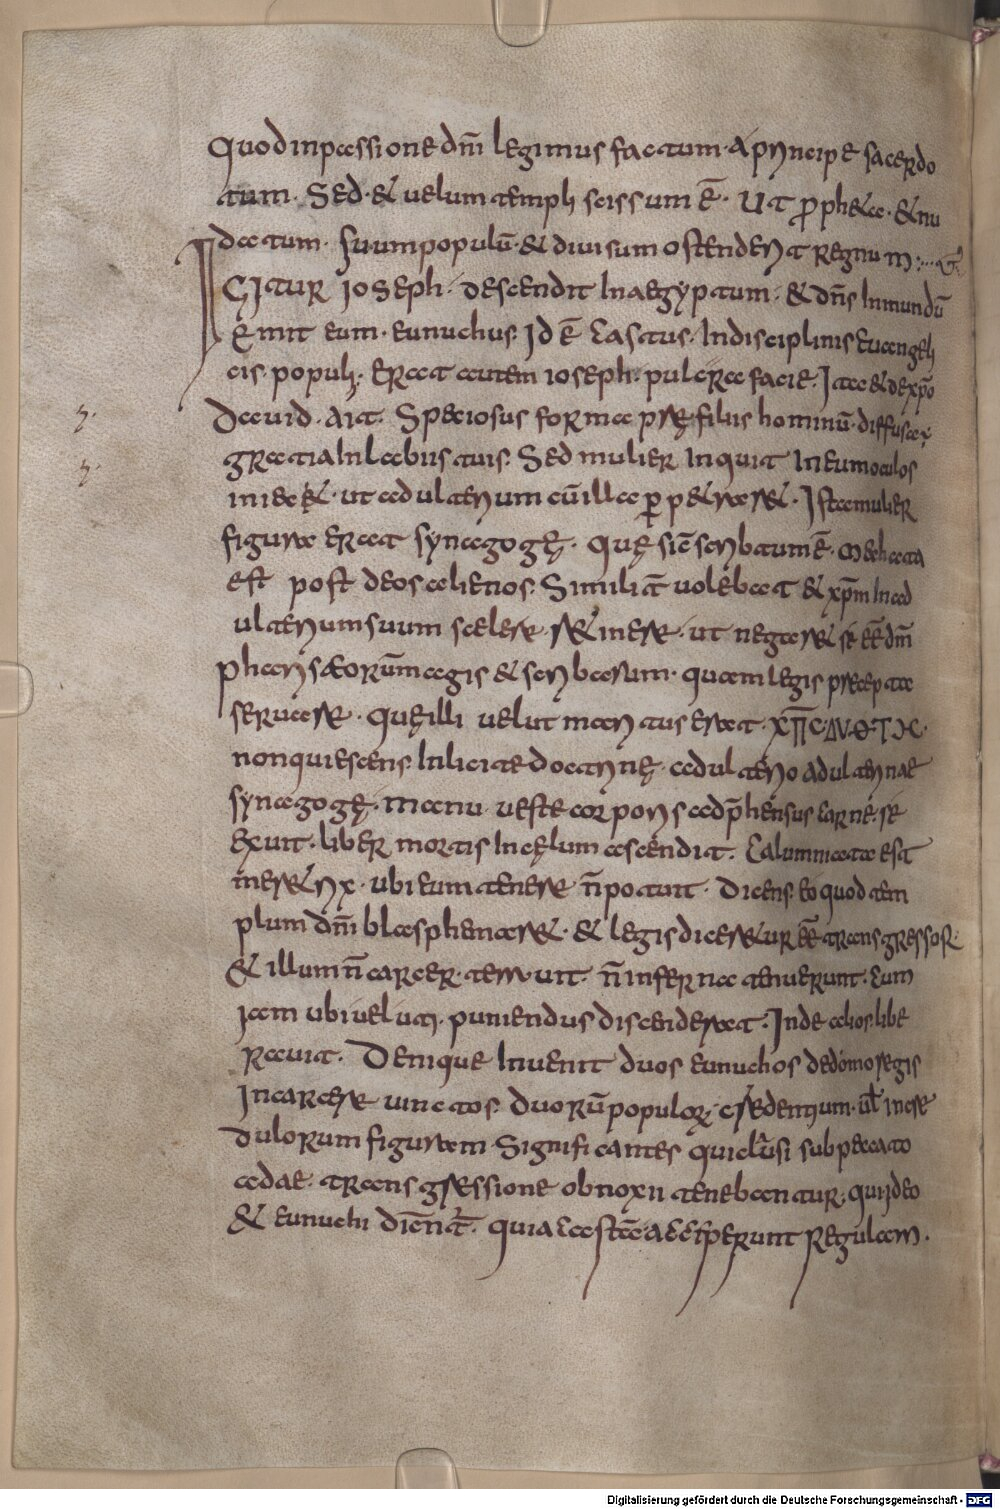 quod in passione dn̄i legimus factum. A principe sacerdo
tum. Sed. & uelum templi scissum ē. Ut p̱phetae. & nu
datum. suum populū. & diuisum ostenderet Regnum:
IGITUR IOSEPh. descendit In aegyptum. & dn̄s In mundū
Emit eum. eunuchus. Id ē castus. In disciplinis euangeli
cis. populi. Erat autem ioseph. pulcrae facie. Ita & de xp̄o
Dauid. ait. Speciosus formae prę filiis hominū. diffusa;
gratia In labiis tuis. Sed mulier Inquit In eum oculos
iniec&. ut adulterium cū illa p̱petrar&. Ista mulier
figura erat synagogę. Quę sic̄ scribtum ē. mechata
est post deos alienos. Simili t̄ uolebat & xp̄m In ad
ulterium suum scelere r&inere. ut negar& se eē dm̄
phariseorūm magis & scribarum. quam legis praecepta
seruare. Quę illi uelut maritus erat. XΠC·ΔV·Θ·TX·
non quiescens. In licitae doctrinę. adultero adulterinae
synagogę. manu ueste corporis adp̄hensus carnē. se
exuit. liber mortis In cęlum ascendit. Calumniata est
mer&rix. ubi eum tenere n̄ potuit. Dicens. eo quod tem
plum dn̄i blasphemar&. & legis dicer&ur eē transgressor.
& illum n̄ carcer. terruit. n̄ inferna tenuerunt. Cum
iam ubi uelut. puniendus discenderat. Inde alios. libe
rauit. Denique Inuenit duos eunuchos de domo regis
In carcere uinctos. Duorū populoꝝ; credentium. ul̄ incre
dulorum figuram. Significantes qui clusi sub peccato
adae. transgressione obnoxii tenebantur; qui ideo
& eunuchi dicn̄t̄. quia castā acciperunt regulam.
Digitalisierung gefördert durch die Deutsche Forschungsgemeinschaft - DFG